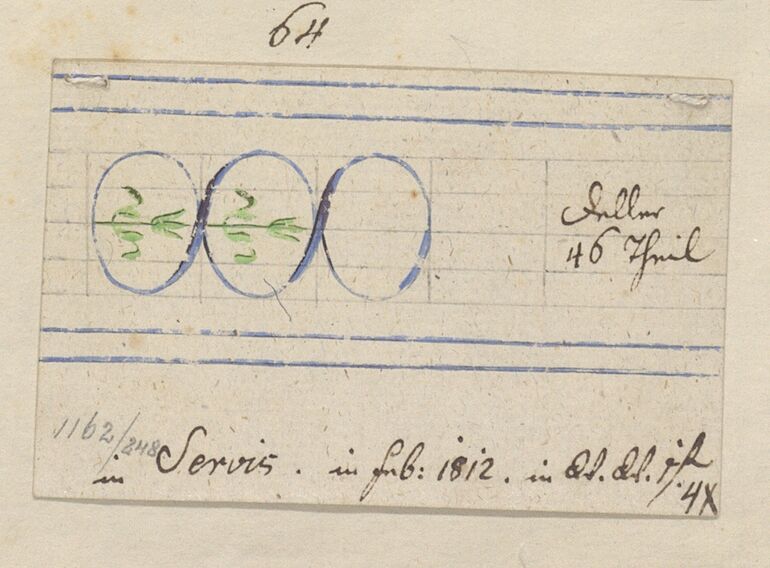 64
Deller
46 Theil
1162/248
in Servis. in Feb: 1812. in
4X